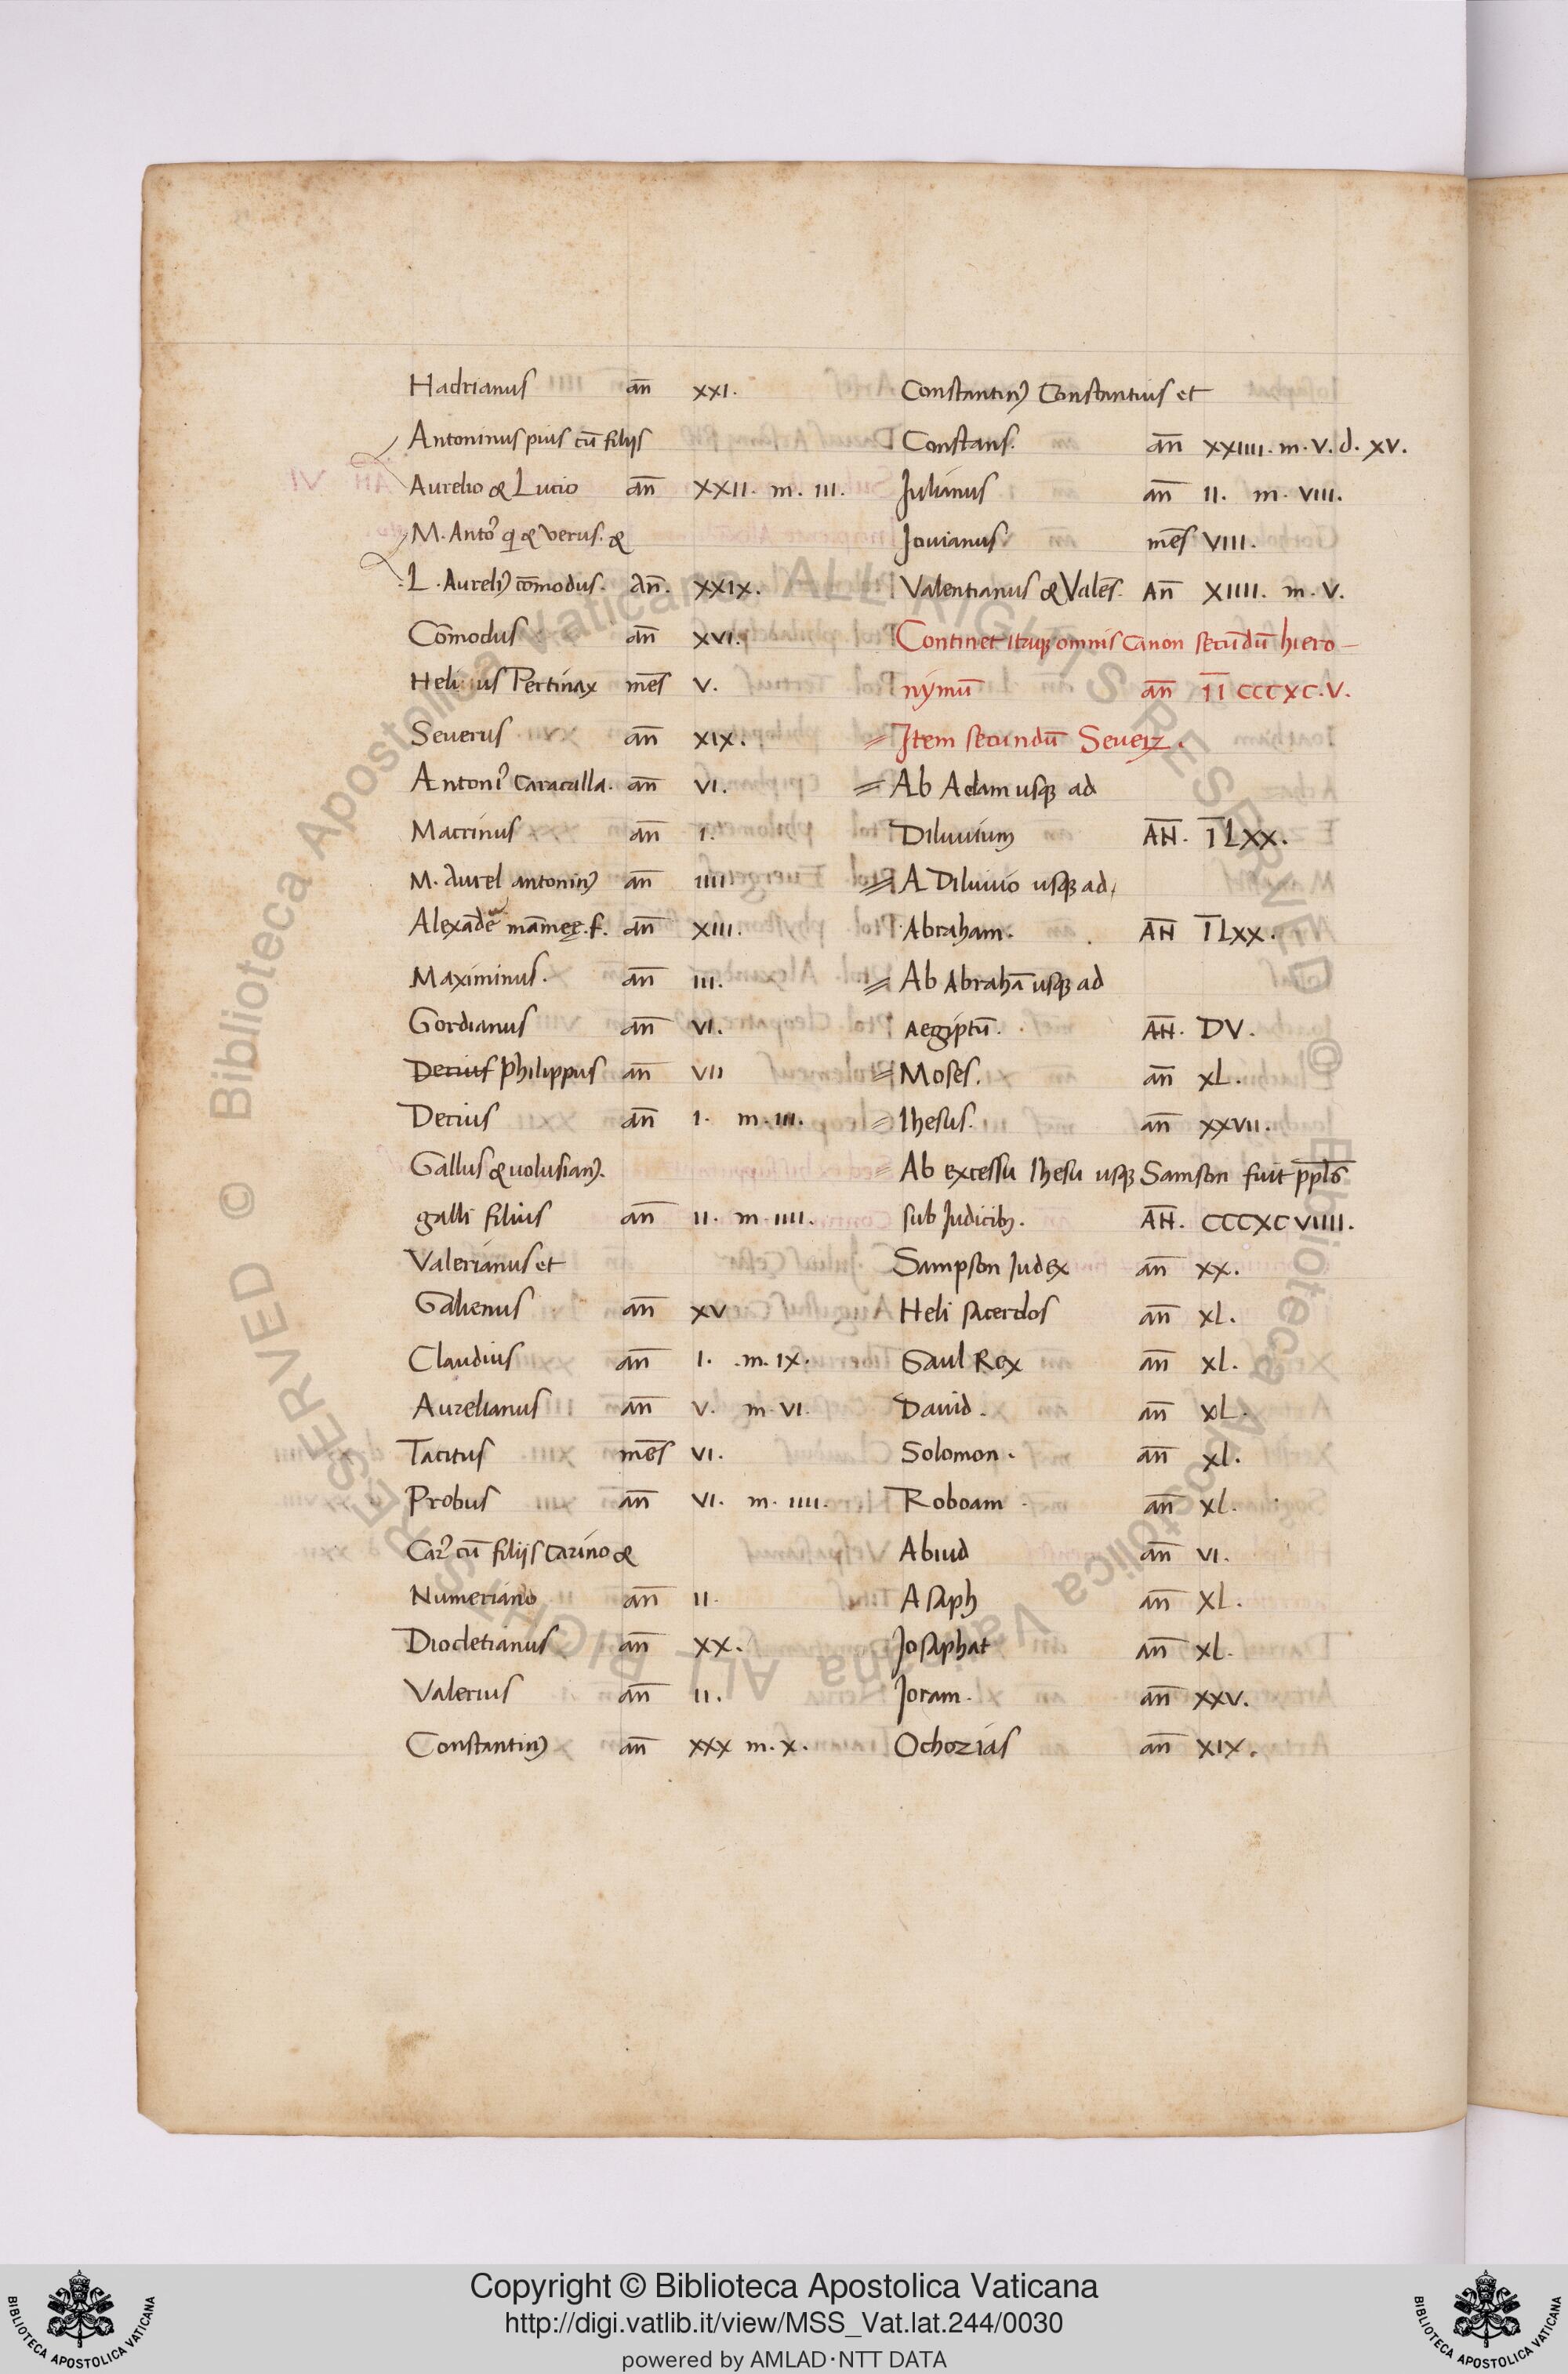 Hadrianus an̅ XXI.
Antoninus pius cu̅ filijs
Aurelio & Lucio an̅ XXII. m. III.
M. Anto᾽ q & verus. &
L. Aureliꝰ co̅modus. An̅. XXIX.
Co̅modus an̅ XVI.
Helius Pertinax me̅s V.
Seuerus an̅ XIX.
Antoniꝰ Caracalla. an̅ VI.
Macrinus an̅ I.
M. Aurel antoninꝰ an̅ IIII
Alexa̅de mamęę. f. an̅ XIII.
Maximinus. an̅ III.
Gordianus an̅ VI.
Decius philippus an̅ VII
Decius an̅ I. m. III.
Gallus & uolusianꝰ.
galli filius an̅ II. m. IIII.
Valerianus et
Galienus an̅ XV
Claudius an̅ I. m. IX.
Aurelianus an̅ V. m. VI.
Tacitus me̅s VI.
Probus an̅ VI. m. IIII.
Carꝰ cu̅ filijs Carino &
Numeriano an̅ II.
Diocletianus an̅ XX.
Valerius an̅ II.
Constantinꝰ an̅ XXX m. X.
Constantinꝰ Constantius et
Constans. an̅ XXIIII. m. V. d. XV.
Julianus an̅ II. m. VIII.
Jouianus me̅s VIII.
Valentianus & Vale̅s. An̅ XIIII. m. V.
Continet itaqꝫ omnis Canon secu̅du̅ hiero-
nymu̅ an̅ I̅I̅ CCCXC.V.
Item secundu̅ Seueꝝ.
Ab Adam usqꝫ ad
Diluuium AN̅. I̅ LXX.
A Diluuio usqꝫ ad
Abraham. AN̅ I̅ LXX.
Ab Abraha̅ usqꝫ ad
Aegiptu̅. AN̅. DV.
Moses. an̅ XL.
Ihesus. an̅ XXVII.
Ab excessu Ihesu usqꝫ Samson fuit ppl̅s
sub Judicibꝫ. AN̅. CCCXCVIIII.
Sampson Judex an̅ XX.
Heli sacerdos an̅ XL.
Saul Rex an̅ XL.
Dauid. an̅ XL.
Solomon. an̅ XL.
Roboam an̅ XL.
Abiud an̅ VI.
Asaph an̅ XL.
Josaphat an̅ XL.
Joram. an̅ XXV.
Ochozias an̅ XIX.
© Biblioteca Apostolica Vaticana ALL RIGHTS RESERVED
© Biblioteca Apostolica Vaticana ALL RIGHTS RESERVED
Copyright © Biblioteca Apostolica Vaticana
http://digi.vatlib.it/view/MSS_Vat.lat.244/0030
powered by AMLAD·NTT DATA
BIBLIOTECA APOSTOLICA VATICANA
BIBLIOTECA APOSTOLICA VATICANA